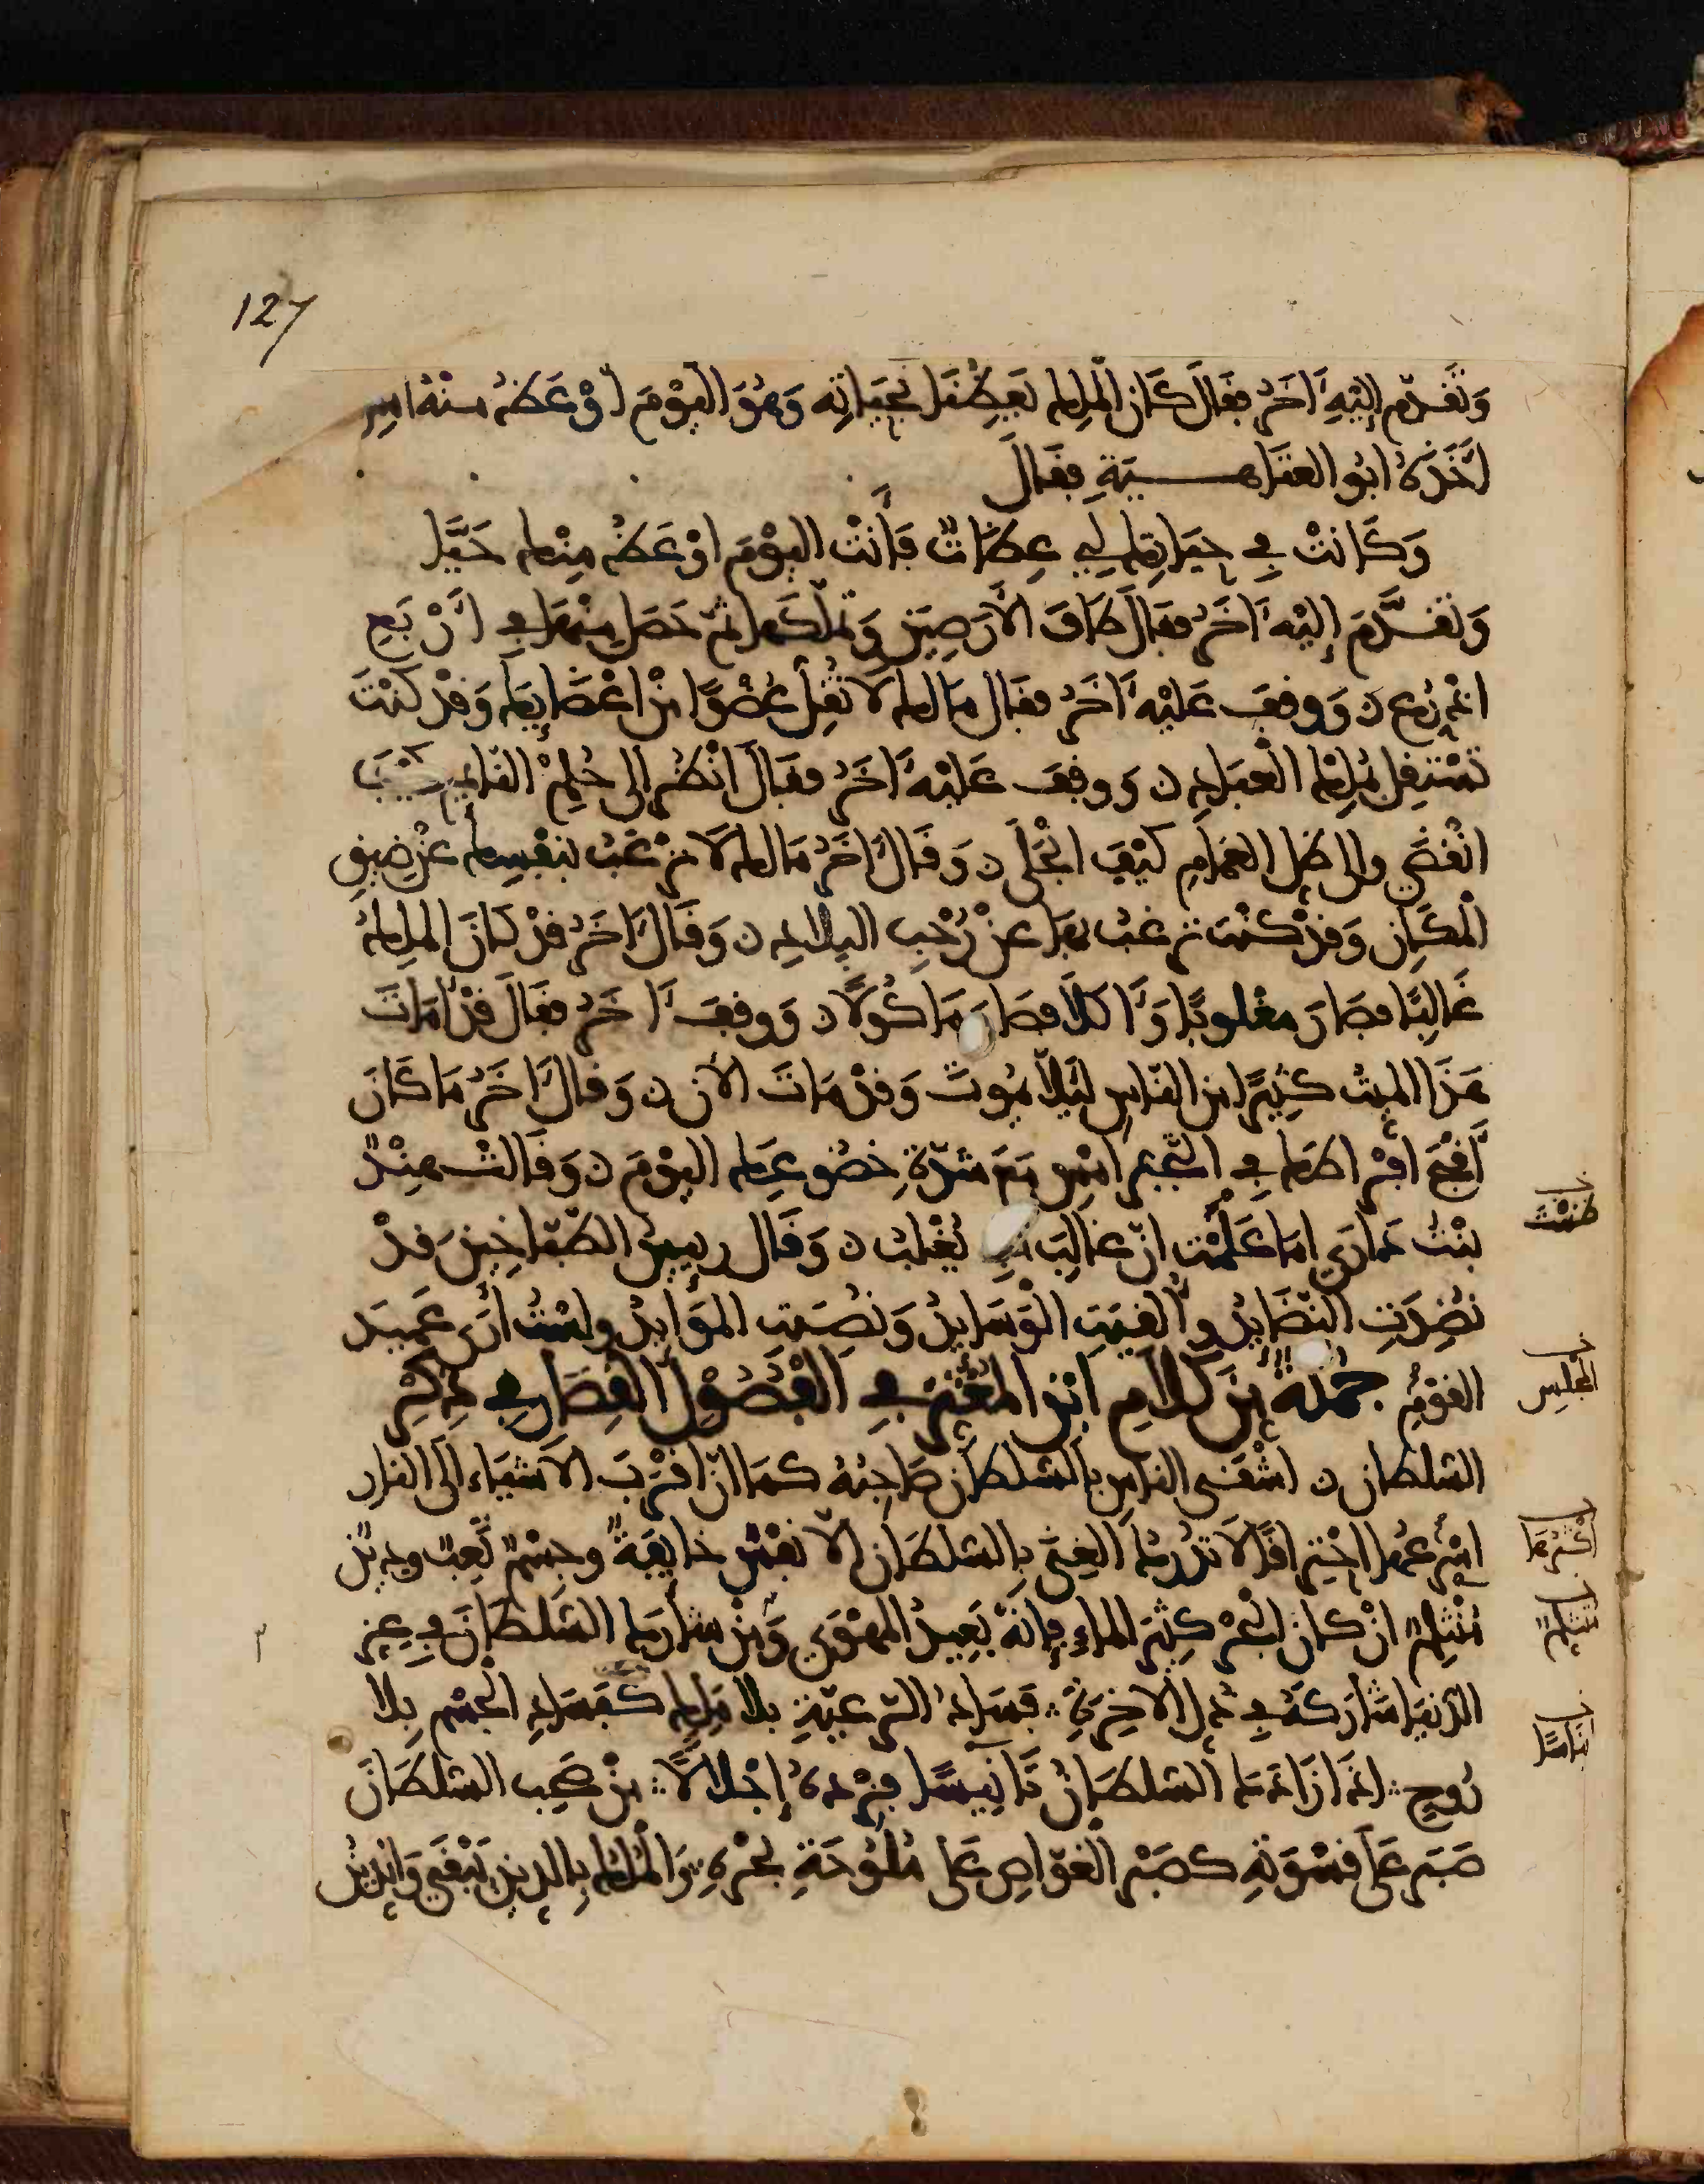 127
وَتَقَدَّم إِلَيْهِ آخَرُ فقَالَ كَانَ الْمَلِك يَعِظُنَا بِحَيَاتِه وَهُوَ اليَوْمَ أَوْعَظُ مِنْهُ امِس
أَخَذَهُ ابُو العتَاهـــيَةِ فقَالَ
وَكَانَتْ فِي حَيَاتِكَ لِي عِظَاتٌ فَأَنْتَ اليَوْمَ اوْعَظُ مِنْكَ حَيًّا
وَتَقَدَّمَ إِلَيْهِ آخَرُ فقَالَ طَافَ الأَرَضِينَ وَتَمَلَّكَهَا ثمّ حَصَلَ مِنْهَا فِي أَرْبَعِ
اذْرُع ن وَوقفَ عَلَيْهِ آخَرُ فقَال مَا لَك لَا تُقِلّ عُضْوًا مِنْ اعْضَايِكَ وَقَدْ كُنْتَ
تَسْتَقِلّ مُلْكَ العِبَادِ ن وَوقفَ عَلَيْهِ آخَرُ فقَالَ انْظُرْ إِلى حُلْمِ النّايِمِ كَيْفَ
انْقَضَى وإلى ظِلّ الغمَامِ كَيْفَ انْجَلَى ن وَقَالَ آخَرُ مَا لَك لَا تَرْغَبُ بنَفْسِكَ عَنْ ضِيقِ
الْمَكَانِ وَقَدْ كُنْتَ تَرغبُ بهَا عَنْ رُحْبِ البِلَادِ ن وَقَالَ آخَرُ قَدْ كَانَ المَلِكُ
غَالِبًا فصَارَ مغْلوبًا وَآكلاً فصَارَ مَاكُولًا ن وَوقفَ آخَرُ فقَالَ قَدْ أَمَاتَ
هَذَا الميتُ كثِيرًا مِن النّاسِ لئَلّا يَمُوتَ وَقَدْ مَاتَ الآنَ ن وَقالَ آخَرُ مَا كَانَ
أَقْبَحَ افْرَاطَكَ فِي التّجَبّرِ امْسِ مَعَ شدّةِ خضُوعِكَ اليَوْمَ ن وَقَالَتْ هِنْدٌ
بنْتُ دَارَى امَا عَلِمْتَ انّ غالِبَ أَبِي يُغْلَبُ ن وَقَال رييسُ الطّبّاخِينَ قَدْ
نُضِدَتِ النّضَايِدُ وأُلْقِيَتِ الْوَسَايِدُ وَنُصِبَتِ المَوَايِدُ ولَسْتُ أَرَى عَمِيدَ
القَوْمِ جُمْلَةٌ مِنْ كَلامِ ابْنِ المُعْتَزّ فِي الفُصُولِ القِصَارِ فِي ذِكْرِ
السّلطَان ن اشْقَى النّاسِ بِالسّلطَانِ صَاحِبُهُ كمَا انّ اقْرَبَ الأَشيَاءِ إلَى النّارِ
اسْرَعُهَا احْتِرَاقًا لَا يُدْرِكُ الغِنَى بِالسّلطَانِ إلّا نَفْسٌ خَايِفَةٌ وجِسْمٌ تَعِبٌ ودِينٌ
مُنْثلِمٌ انْ كانَ البَحْرُ كثِيرَ المَاءِ فإِنّهُ بَعِيدُ المهْوَى وَمَنْ شَارَكَ السّلطَانَ فِي عِزِّ
الدّنْيَا شَارَكَهُ فِي ذُلِّ الآخِرَةِ فَسَادُ الرّعيّةِ بلا مَلِكٍ كَفَسَادِ الجِسْمِ بِلا
رُوحٍ إذَا زَادَكَ السّلطَانُ تَانِيسًا فزِدهُ إِجْلالًا مَنْ صَحِبَ السّلطَانَ
صَبَرَ عَلَى قسْوَتِهِ كصَبْرِ الْغوّاصِ عَلى مُلُوحَةِ بَحْرِهِ وَالْمُلْكُ بِالدِينِ يَبْقَى وَالدِينُ
ظننتَ
المجلِس
مُتَثلِّمٌ